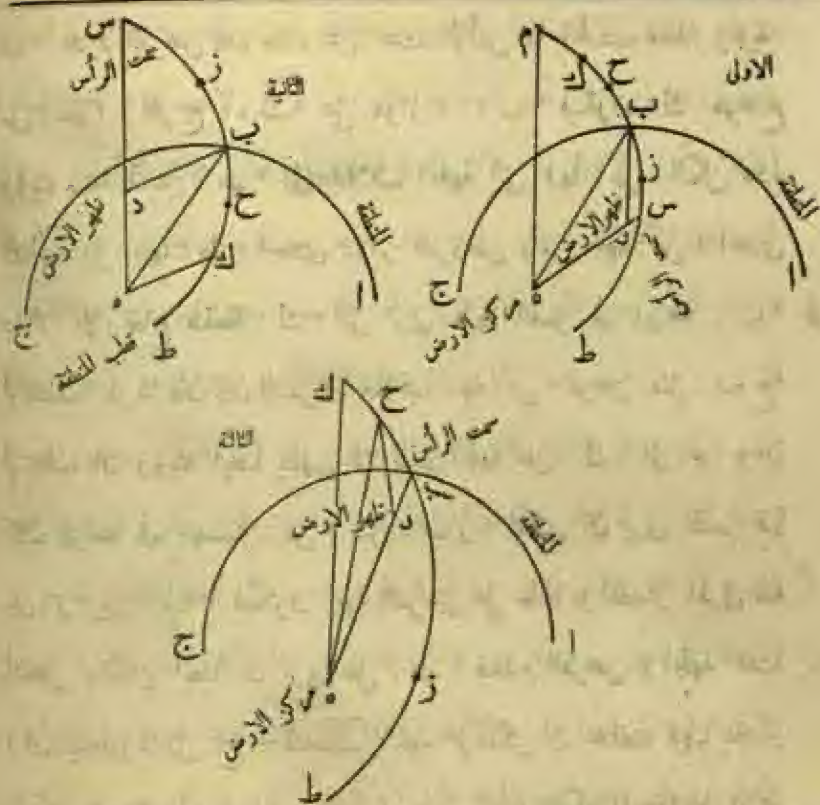 الاولى
م
ك
ح
ب
ز
س
سمت الرأس
د
ظهر الارض
المنطقة
ا
ج
ه
مركز الارض
ط
الثانية
س
سمت الرأس
ز
ب
د
ح
ك
ظهر الارض
المنطقة
ا
ج
ه
ط
قطب المنطقة
الثالثة
ك
ح
سمت الرأس
د
ظهر الارض
المنطقة
ا
ج
ه
مركز الارض
ز
ط